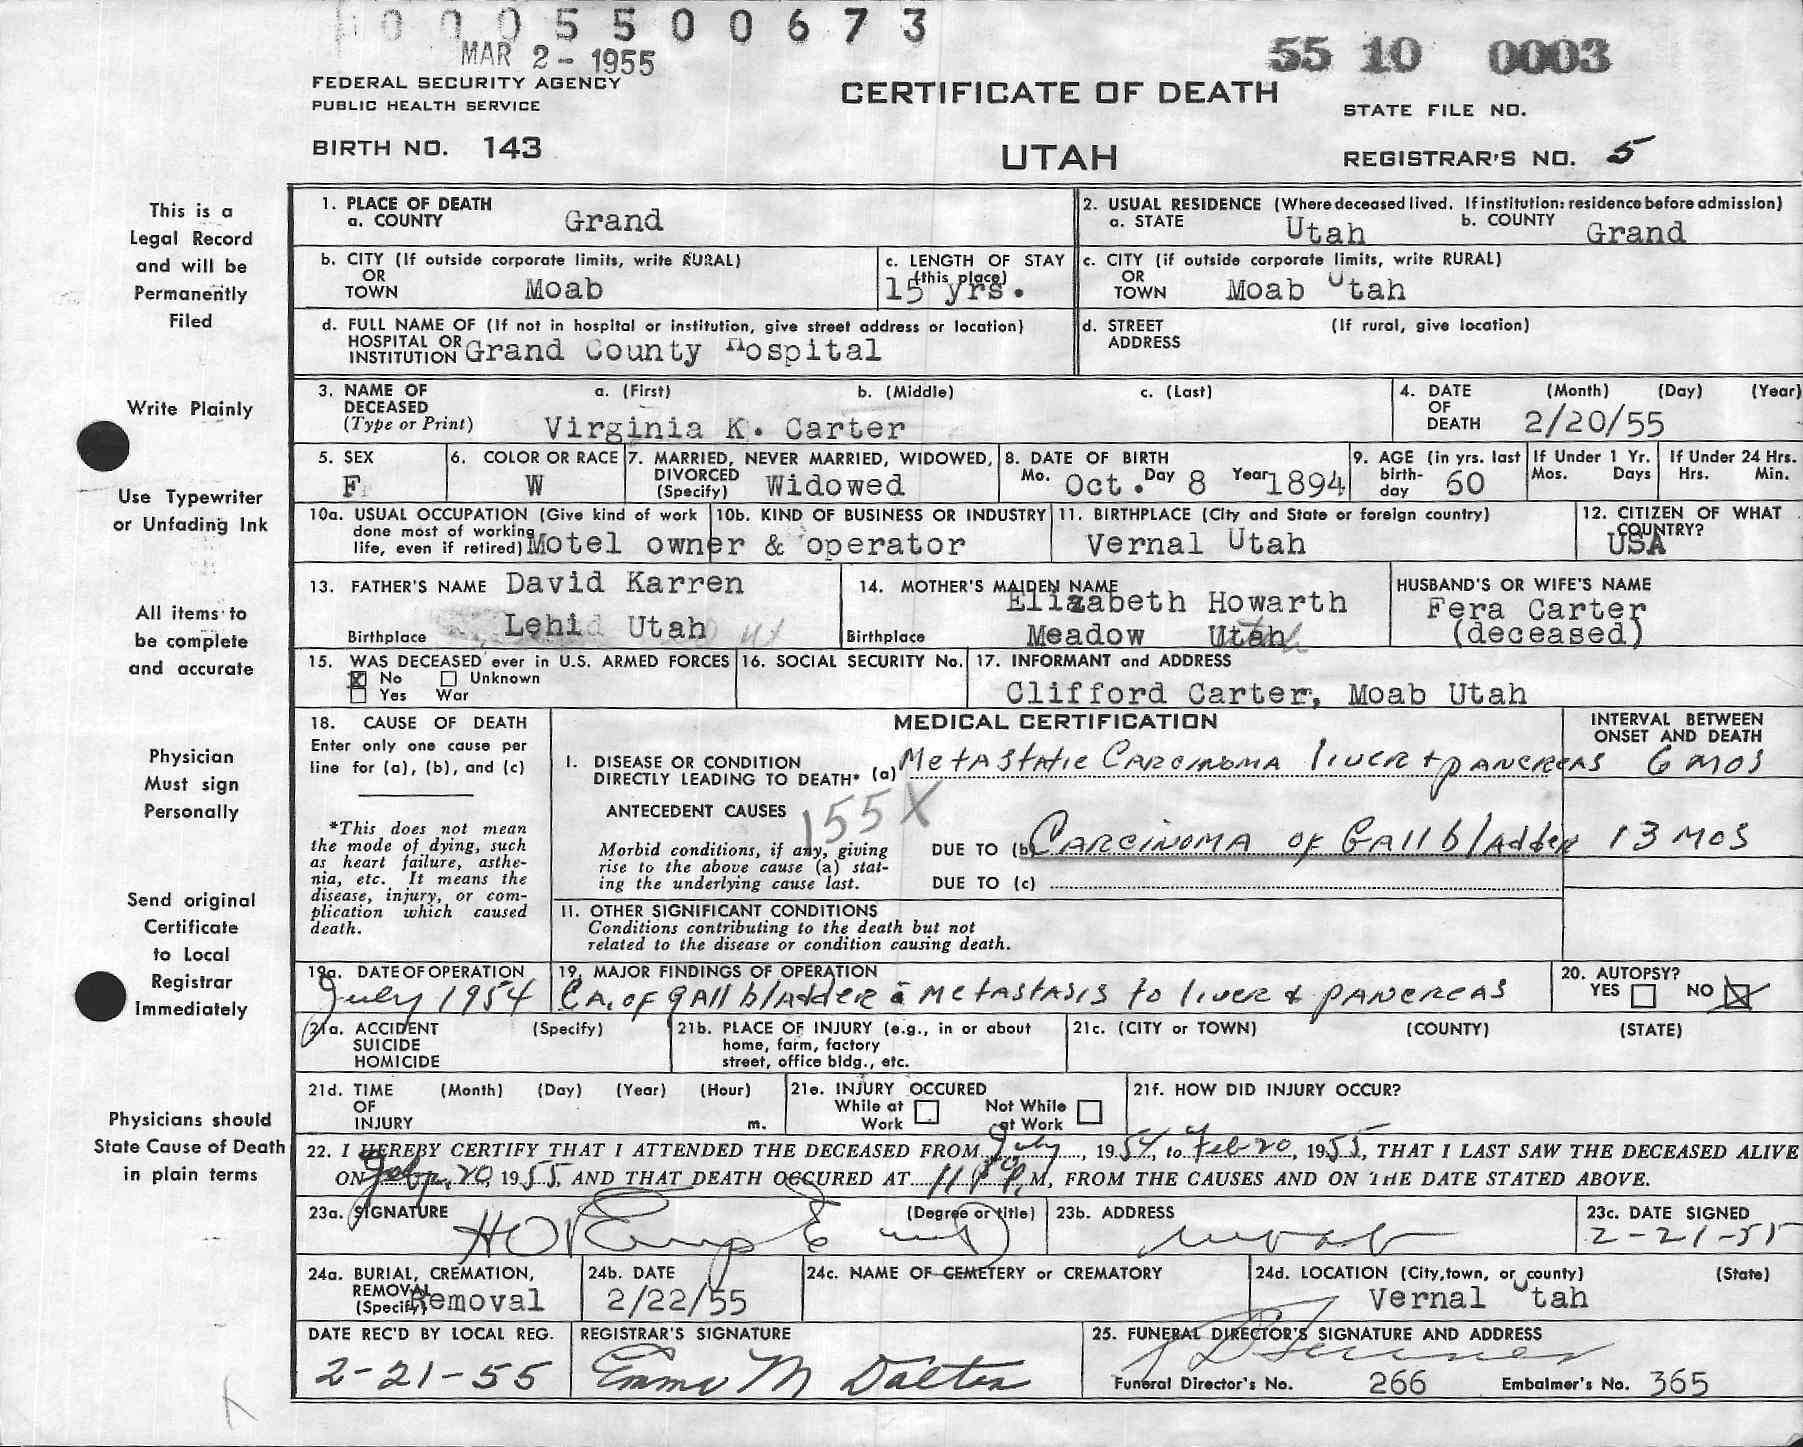 0005500673
MAR 2 - 1955
55 10 0003
FEDERAL SECURITY AGENCY
PUBLIC HEALTH SERVICE
CERTIFICATE OF DEATH
STATE FILE NO.
BIRTH NO. 143
UTAH
REGISTRAR'S NO. 5
This is a
Legal Record
and will be
Permanently
Filed
Write Plainly
Use Typewriter
or Unfading Ink
All items to
be complete
and accurate
Physician
Must sign
Personally
Send original
Certificate
to Local
Registrar
Immediately
Physicians should
State Cause of Death
in plain terms
1. PLACE OF DEATH
a. COUNTY Grand
2. USUAL RESIDENCE (Where deceased lived. If institution: residence before admission)
a. STATE Utah b. COUNTY Grand
b. CITY (If outside corporate limits, write RURAL)
OR
TOWN Moab
c. LENGTH OF STAY
(this place)
15 yrs.
c. CITY (if outside corporate limits, write RURAL)
OR
TOWN Moab Utah
d. FULL NAME OF (If not in hospital or institution, give street address or location)
HOSPITAL OR
INSTITUTION Grand County Hospital
d. STREET (If rural, give location)
ADDRESS
3. NAME OF a. (First) b. (Middle) c. (Last)
DECEASED
(Type or Print) Virginia K. Carter
4. DATE (Month) (Day) (Year)
OF
DEATH 2/20/55
5. SEX
F
6. COLOR OR RACE
W
7. MARRIED, NEVER MARRIED, WIDOWED,
DIVORCED
(Specify) Widowed
8. DATE OF BIRTH
Mo. Oct. Day 8 Year 1894
9. AGE (in yrs. last
birth-
day 60
If Under 1 Yr.
Mos. Days
If Under 24 Hrs.
Hrs. Min.
10a. USUAL OCCUPATION (Give kind of work
done most of working
life, even if retired) Motel owner & operator
10b. KIND OF BUSINESS OR INDUSTRY
11. BIRTHPLACE (City and State or foreign country)
Vernal Utah
12. CITIZEN OF WHAT
COUNTRY?
USA
13. FATHER'S NAME David Karren
Birthplace Lehi Utah
14. MOTHER'S MAIDEN NAME
Elizabeth Howarth
Birthplace Meadow Utah
HUSBAND'S OR WIFE'S NAME
Fera Carter
(deceased)
15. WAS DECEASED ever in U.S. ARMED FORCES
No Unknown
Yes War
16. SOCIAL SECURITY No.
17. INFORMANT and ADDRESS
Clifford Carter, Moab Utah
18. CAUSE OF DEATH
Enter only one cause per
line for (a), (b), and (c)
*This does not mean
the mode of dying, such
as heart failure, asthe-
nia, etc. It means the
disease, injury, or com-
plication which caused
death.
MEDICAL CERTIFICATION
INTERVAL BETWEEN
ONSET AND DEATH
I. DISEASE OR CONDITION
DIRECTLY LEADING TO DEATH* (a) Metastatic Carcinoma liver + pancreas 6 mos
ANTECEDENT CAUSES
155X
Morbid conditions, if any, giving
rise to the above cause (a) stat-
ing the underlying cause last.
DUE TO (b) Carcinoma of Gall bladder 13 mos
DUE TO (c)
II. OTHER SIGNIFICANT CONDITIONS
Conditions contributing to the death but not
related to the disease or condition causing death.
19a. DATE OF OPERATION
July 1954
19. MAJOR FINDINGS OF OPERATION
Ca. of gall bladder c metastasis to liver & pancreas
20. AUTOPSY?
YES NO
21a. ACCIDENT (Specify)
SUICIDE
HOMICIDE
21b. PLACE OF INJURY (e.g., in or about
home, farm, factory
street, office bldg., etc.
21c. (CITY or TOWN) (COUNTY) (STATE)
21d. TIME (Month) (Day) (Year) (Hour)
OF
INJURY m.
21e. INJURY OCCURED
While at Work
Not While at Work
21f. HOW DID INJURY OCCUR?
22. I HEREBY CERTIFY THAT I ATTENDED THE DECEASED FROM July, 1954, to Feb 20, 1955, THAT I LAST SAW THE DECEASED ALIVE
ON Feb. 20, 1955, AND THAT DEATH OCCURED AT 11 P. M, FROM THE CAUSES AND ON THE DATE STATED ABOVE.
23a. SIGNATURE (Degree or title)
23b. ADDRESS
Moab
23c. DATE SIGNED
2-21-55
24a. BURIAL, CREMATION,
REMOVAL
(Specify) Removal
24b. DATE
2/22/55
24c. NAME OF CEMETERY or CREMATORY
24d. LOCATION (City, town, or county) (State)
Vernal Utah
DATE REC'D BY LOCAL REG.
2-21-55
REGISTRAR'S SIGNATURE
Emma M Dalton
25. FUNERAL DIRECTOR'S SIGNATURE AND ADDRESS
Funeral Director's No. 266 Embalmer's No. 365